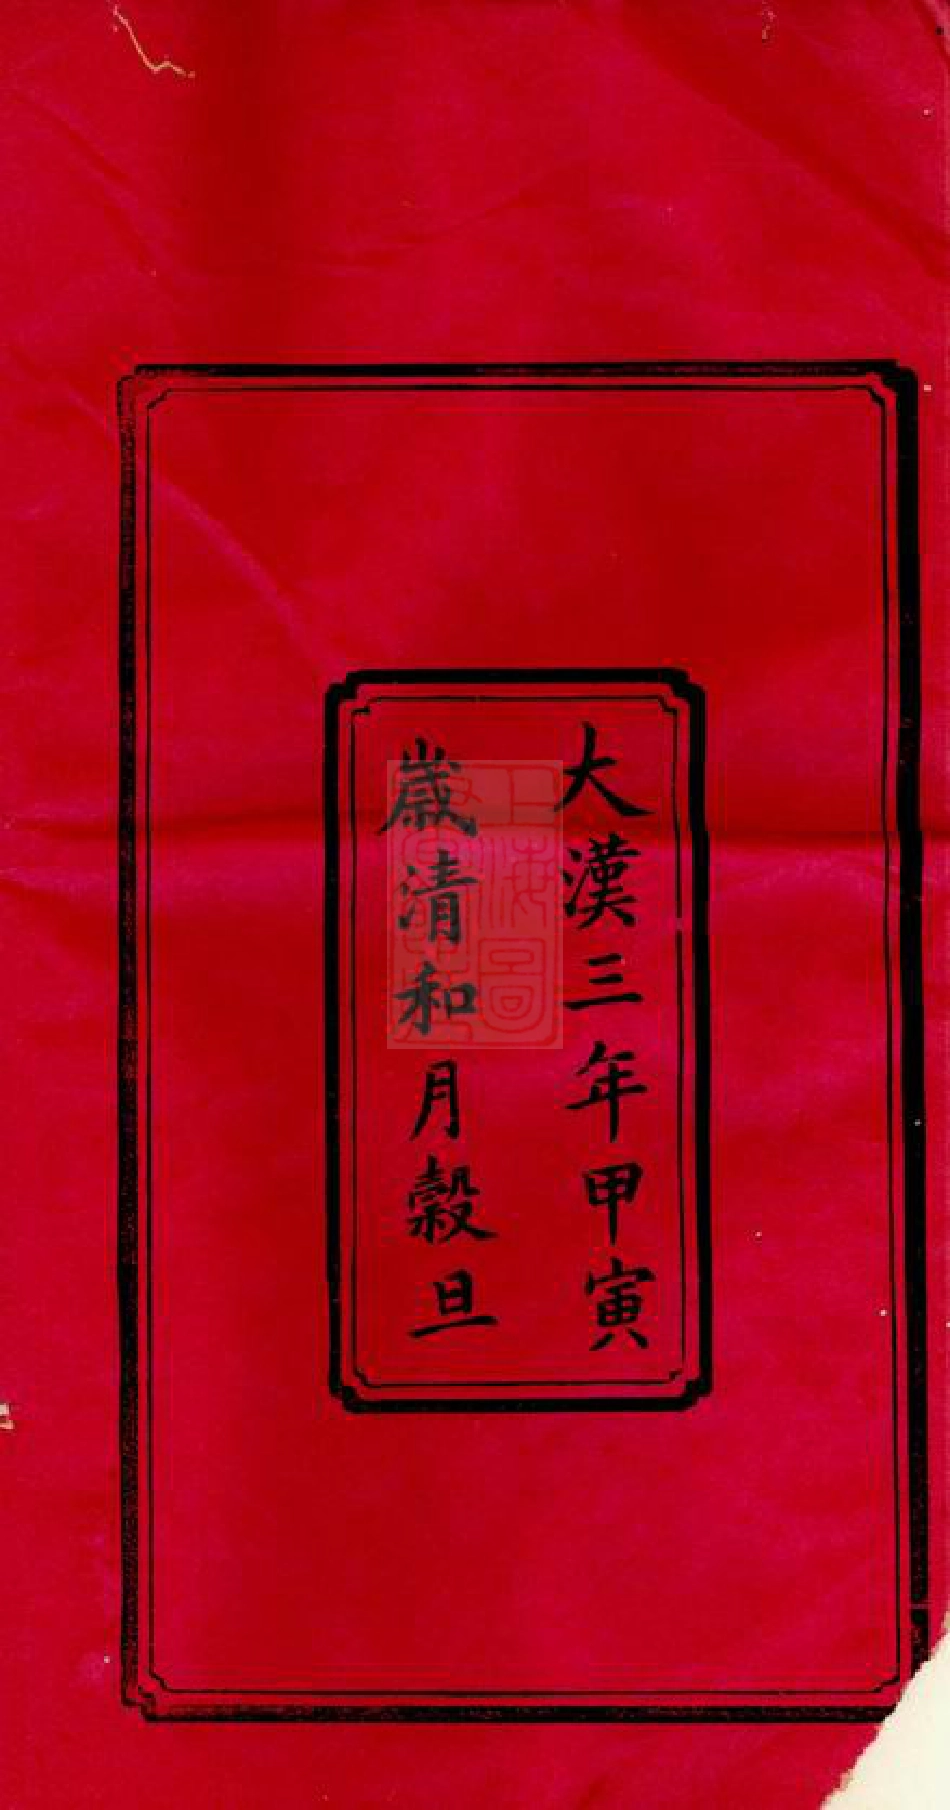 大漢三年甲寅
歲清和月穀旦